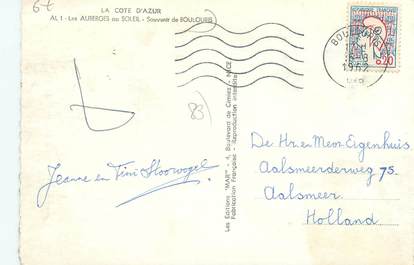 67
LA COTE D'AZUR
AL 1 - Les AUBERGES du SOLEIL - Souvenir de BOULOURIS
83)
Jeanne en Fini Stoorvogel
Les Editions "MAR" - 4, Boulevard de Cimiez - NICE
Fabrication Française - Reproduction interdite
REPUBLIQUE FRANÇAISE
0,20
BOULOURIS
1962
VAR
De Hr en Mevr Eigenhuis
Aalsmeerderweg 75.
Aalsmeer
Holland